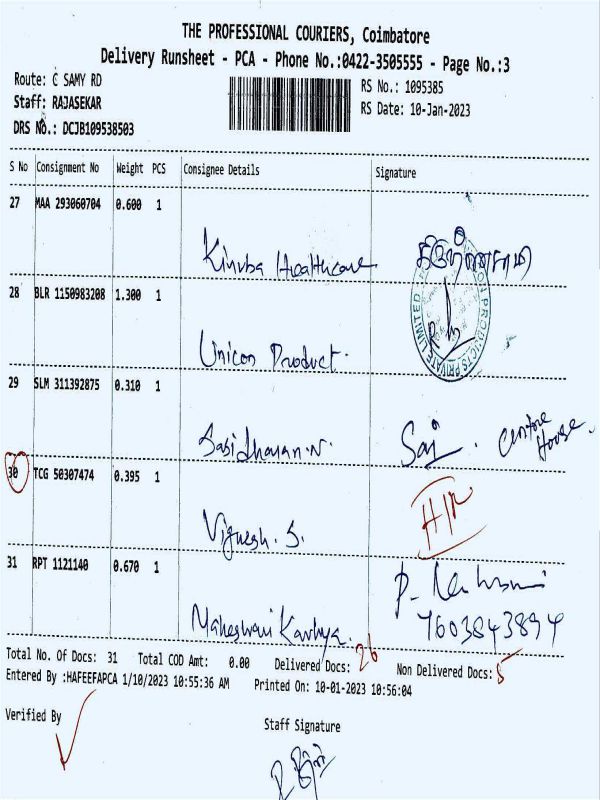 THE PROFESSIONAL COURIERS, Coimbatore
Delivery Runsheet - PCA - Phone No.:0422-3505555 - Page No.:3
Route: C SAMY RD
RS No.: 1095385
Staff: RAJASEKAR
RS Date: 10-Jan-2023
DRS No.: DCJB109538503
S No Consignment No Weight PCS Consignee Details Signature
27 MAA 293060704 0.600 1
Kinvba Healthcare
28 BLR 1150983208 1.300 1
Unicon Product.
29 SLM 311392875 0.310 1
Sasidharan.N. Sai. Centre House.
30 TCG 50307474 0.395 1
Vignesh. S.
31 RPT 1121140 0.670 1
Maheswari Kavhya. 7603843894
Total No. Of Docs: 31 Total COD Amt: 0.00 Delivered Docs: 26 Non Delivered Docs: 5
Entered By :HAFEEFAPCA 1/10/2023 10:55:36 AM Printed On: 10-01-2023 10:56:04
Verified By
Staff Signature